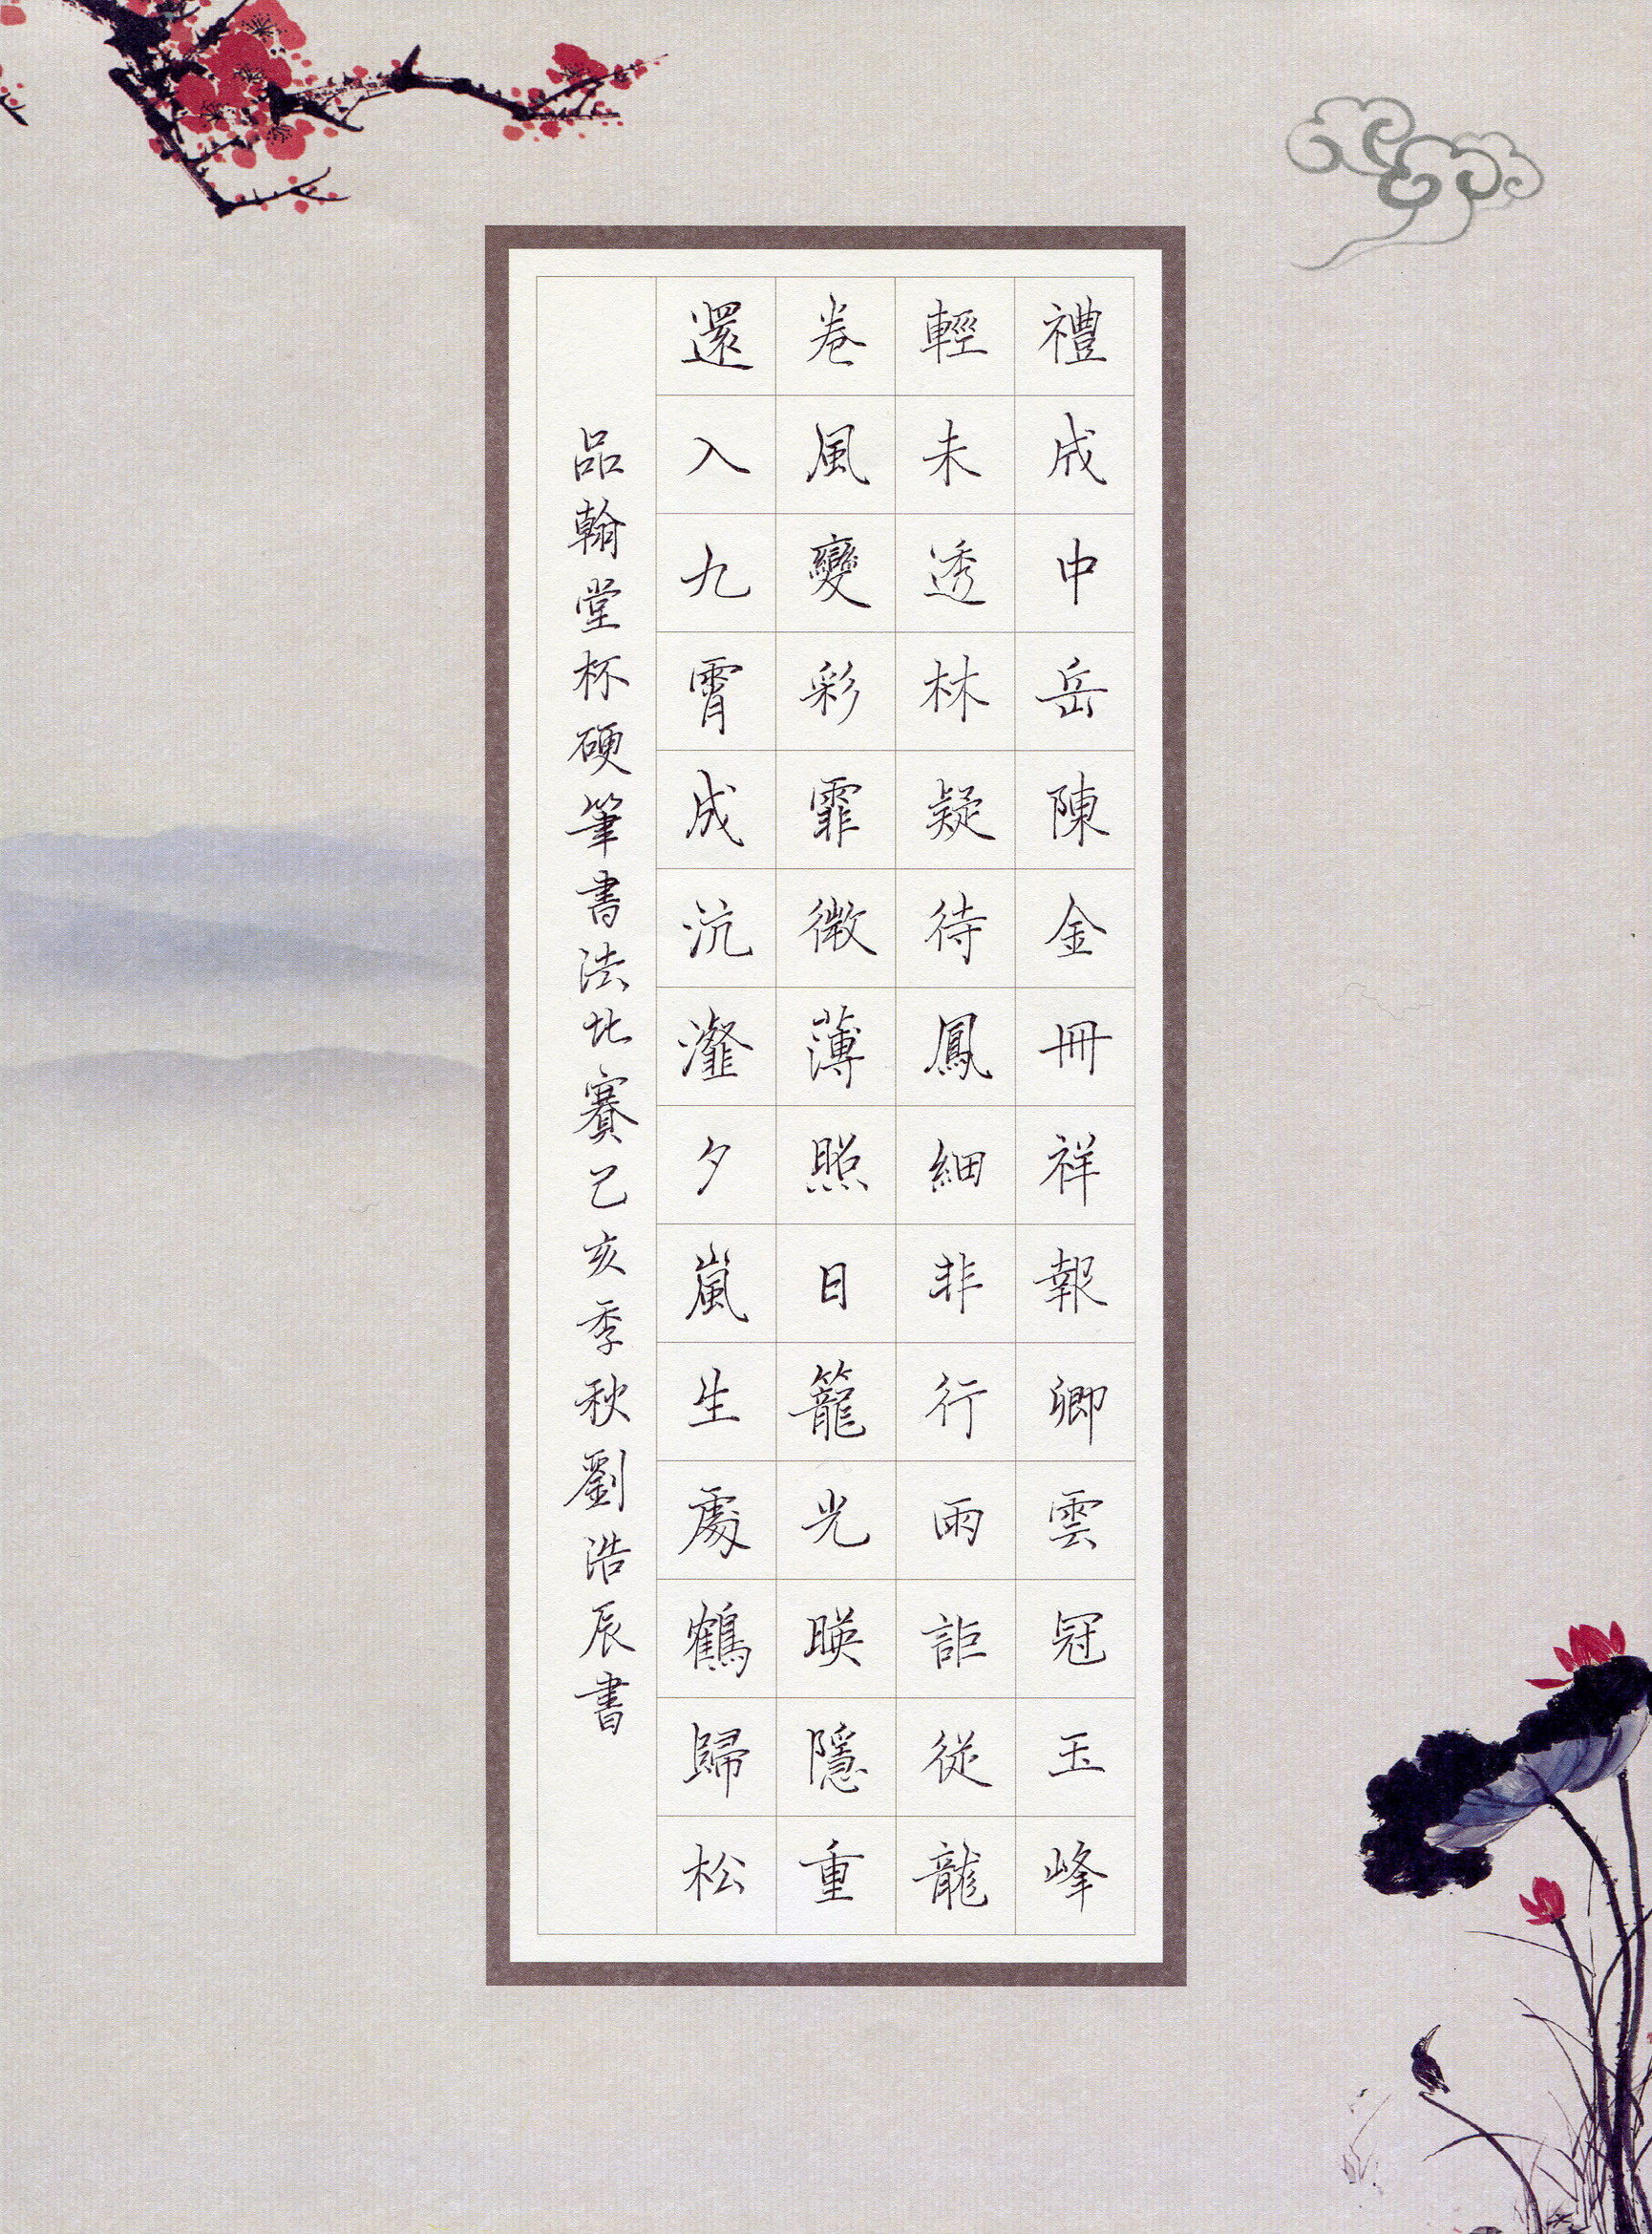 禮成中岳陳金冊祥報卿雲冠玉峰
輕未透林疑待鳳細非行雨詎從龍
卷風變彩霏微薄照日籠光暎隱重
還入九霄成沆瀣夕嵐生處鶴歸松
品翰堂杯硬筆書法比賽己亥季秋劉浩辰書